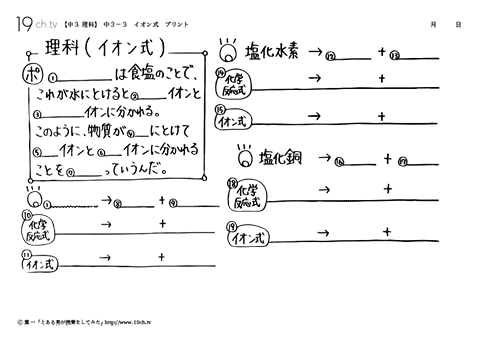 19ch.tv 【中3 理科】 中3-3 イオン式 プリント 月 日
理科(イオン式)
ポ ①______は食塩のことで、
これが水にとけると②____イオンと
③______イオンに分かれる。
このように、物質が④__にとけて
⑤__イオンと⑥__イオンに分かれる
ことを⑦____っていうんだ。
①______ → ⑧____ + ⑨____
⑩化学反応式 → +
⑪イオン式 → +
塩化水素 → ⑫____ + ⑬____
⑭化学反応式 → +
⑮イオン式 → +
塩化銅 → ⑯____ + ⑰____
⑱化学反応式 → +
⑲イオン式 → +
© 葉一「とある男が授業をしてみた」http://www.19ch.tv